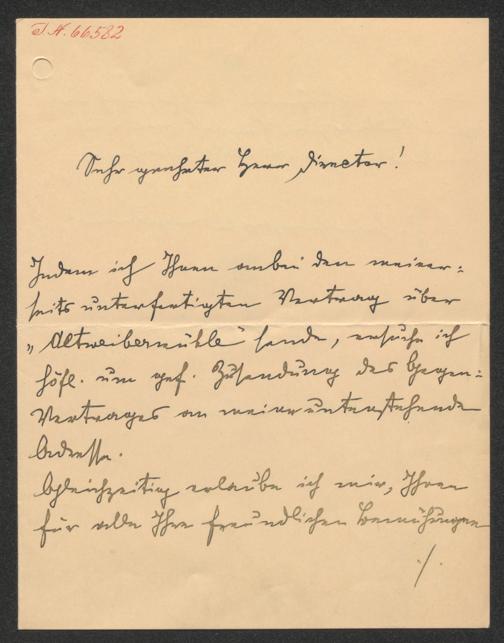 I.N. 66582
Sehr geehrter Herr Director!
Indem ich Ihnen anbei den meiner=
seits unterfertigten Vertrag über
„Altweibermühle" sende, ersuche ich
höfl. um gef. Zusendung des Gegen=
Vertrages an meine untenstehende
Adresse.
Gleichzeitig erlaube ich mir, Ihnen
für alle Ihre freundlichen Bemühungen
./.